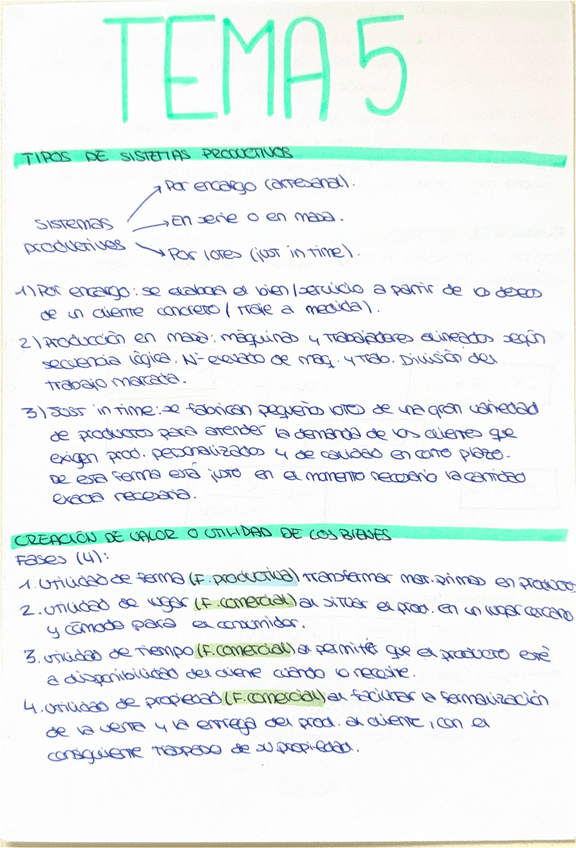 TEMA 5
TIPOS DE SISTEMAS PRODUCTIVOS
Por encargo (artesanal).
SISTEMAS
En serie o en masa.
productivos
Por lotes (just in time).
1) Por encargo: se elabora el bien/servicio a partir de los deseos
de un cliente concreto (traje a medida).
2) Producción en masa: máquinas y trabajadores alineados según
secuencia lógica. Nº elevado de maq. y trab. División del
trabajo marcada.
3) Just in time: se fabrican pequeños lotes de una gran variedad
de productos para atender la demanda de los clientes que
exigen prod. personalizados y de calidad en corto plazo.
De esta forma está justo en el momento necesario la cantidad
exacta necesaria.
CREACIÓN DE VALOR O UTILIDAD DE LOS BIENES
Fases (4):
1. Utilidad de forma (F. productiva) transformar mat. primas en productos
2. Utilidad de lugar (F. comercial) al situar el prod. en un lugar cercano
y cómodo para el consumidor.
3. Utilidad de tiempo (F. comercial) al permitir que el producto esté
a disponibilidad del cliente cuando lo necesite.
4. Utilidad de propiedad (F. comercial) al facilitar la formalización
de la venta y la entrega del prod. al cliente, con el
consiguiente traspaso de su propiedad.